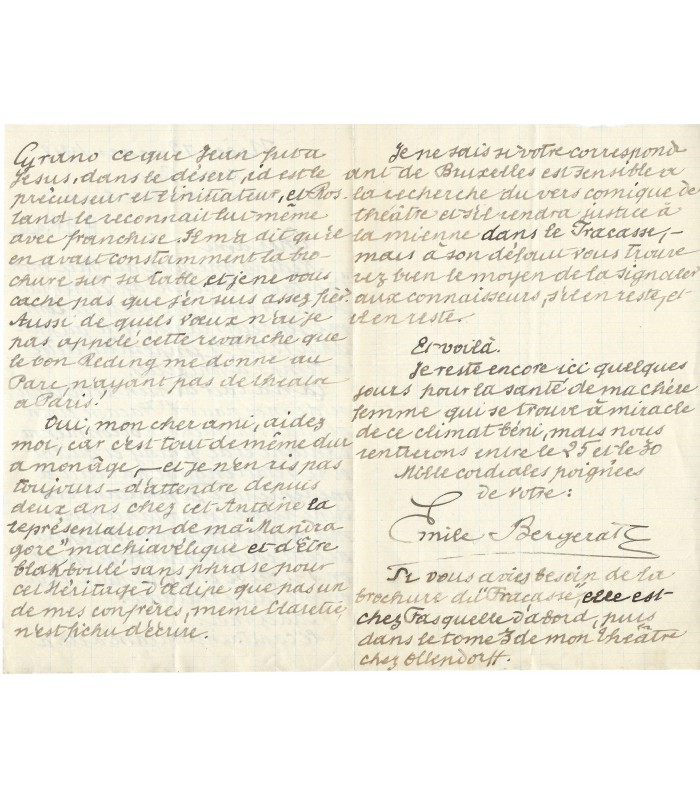 Cyrano ce que Jean fut à
Jésus, dans le désert, id est le
précurseur et l'initiateur, et Ros-
tand le reconnait lui même
avec franchise. Il m'a dit qu'il
en avait constamment la bro-
chure sur sa table et je ne vous
cache pas que j'en suis assez fier.
Aussi de quels vœux n'ai je
pas appelé cette revanche que
le bon Reding me donne au
Parc, n'ayant pas de théatre
a Paris!
Oui, mon cher ami, aidez
moi, car c'est tout de même dur
a mon âge, — et je n'en ris pas
toujours — d'attendre depuis
deux ans chez cet Antoine la
représentation de ma "Mandra
gore" machiavélique et d'Être
blakboulé sans phrase pour
cet Héritage d'Œdipe que pas un
de mes confrères, même Claretie,
n'est fichu d'écrire.
Je ne sais si votre correspond
ant de Bruxelles est sensible a
la recherche du vers comique de
théâtre et s'il rendra justice à
la mienne dans le Fracasse, —
mais à son défaut vous trouve
rez bien le moyen de la signaler
aux connaisseurs, s'il en reste, et
il en reste.
Et voilà.
Je reste encore ici quelques
jours pour la santé de ma chère
femme qui se trouve à miracle
de ce climat béni, mais nous
rentrerons entre le 25 et le 30
Mille cordiales poignées
de votre:
Emile Bergerat
Si vous aviez besoin de la
brochure du "Fracasse", elle est
chez Fasquelle d'abord, puis
dans le tome 3 de mon théâtre
chez Ollendorff.